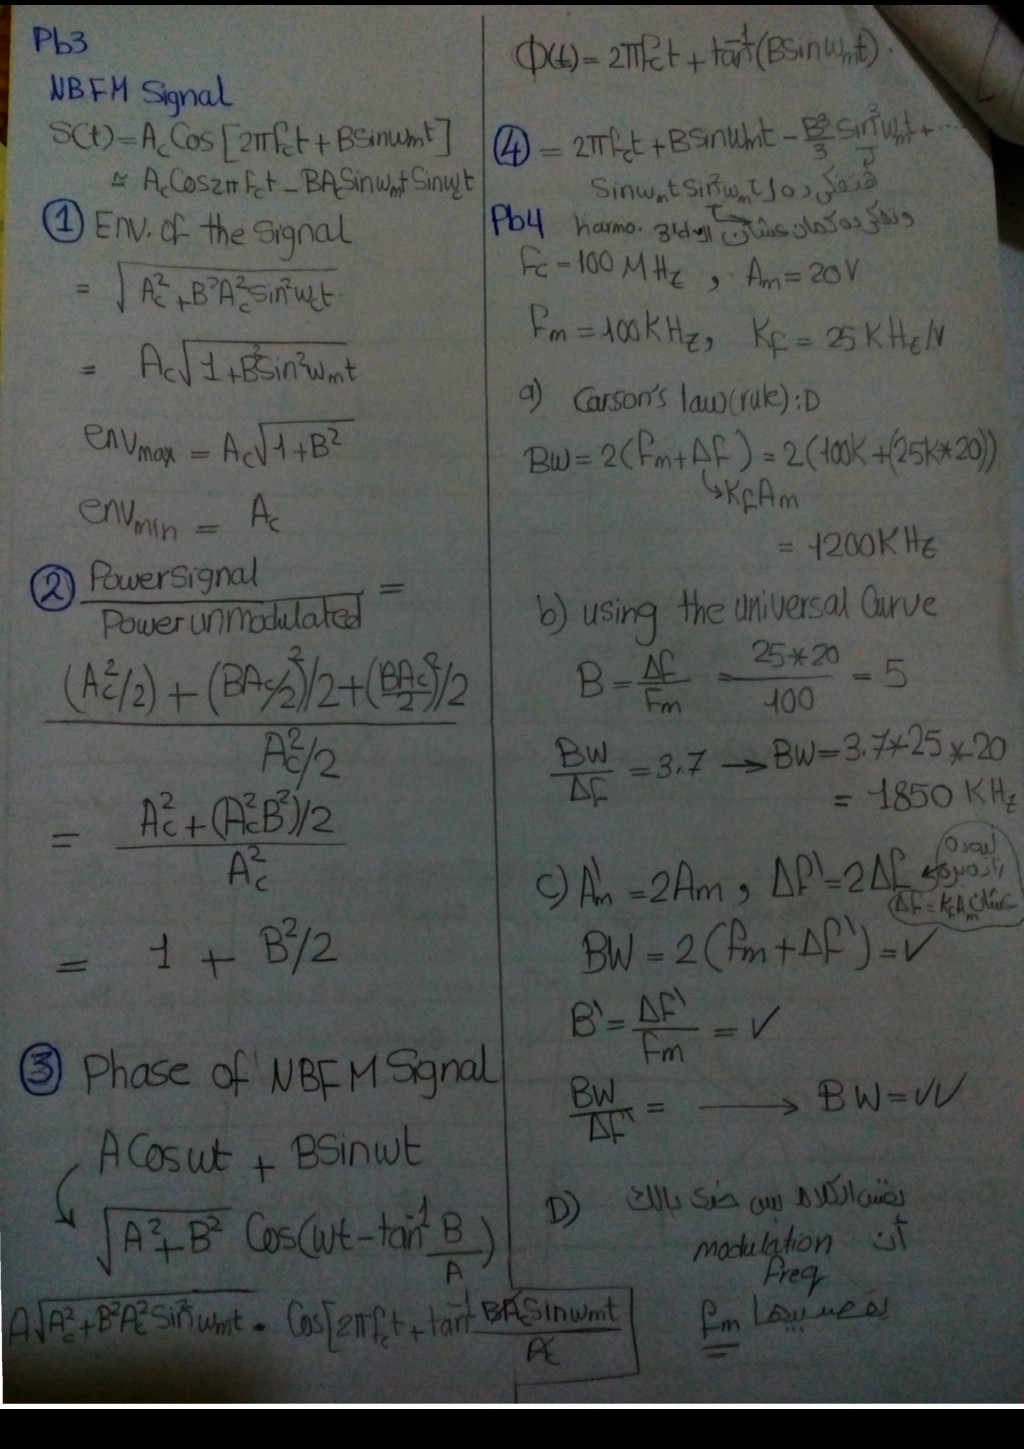 Pb3
NBFM Signal
S(t) = A_c Cos[2πf_ct + BSinω_mt]
≃ A_cCos2πf_ct - BA_cSinω_mt Sinω_ct
① Env. of the signal
= √(A_c² + B²A_c²Sin²ω_ct)
= A_c√(1+B²Sin²ω_mt)
env_max = A_c√(1+B²)
env_min = A_c
② Power Signal / Power unmodulated =
((A_c²/2) + (BA_c/2)²/2 + (BA_c/2)²/2) / (A_c²/2)
= (A_c² + (A_c²B²)/2) / A_c²
= 1 + B²/2
③ Phase of NBFM Signal
ACosωt + BSinωt
√(A²+B²) Cos(ωt - tan⁻¹ B/A)
A√(A_c²+B²A_c²Sin²ω_mt) . Cos[2πf_ct + tan⁻¹ BA_cSinω_mt / A_c
Φ(t) = 2πf_ct + tan⁻¹(BSinω_mt).
④ = 2πf_ct + BSinω_mt - B³/3 Sin³ω_mt + ....
Sinω_mt Sin²ω_mt
Pb4 harmo.
F_c = 100 MHz , A_m = 20V
F_m = 100KHz, K_f = 25KHz/V
a) Carson's law(rule) :D
BW = 2(F_m + ΔF) = 2(100K + (25K*20))
↳K_fA_m
= 1200KHz
b) using the universal Curve
B = ΔF/F_m = 25*20/100 = 5
BW/ΔF = 3.7 → BW = 3.7*25*20
= 1850 KHz
c) A'_m = 2A_m , Δf' = 2Δf
عشان ΔF = K_fA_m
BW = 2(f_m + Δf') = ✓
B' = ΔF'/F_m = ✓
BW/ΔF' = → BW = ✓✓
D) نفس الكلام بس خدى بالك
أن modulation
freq
f_m